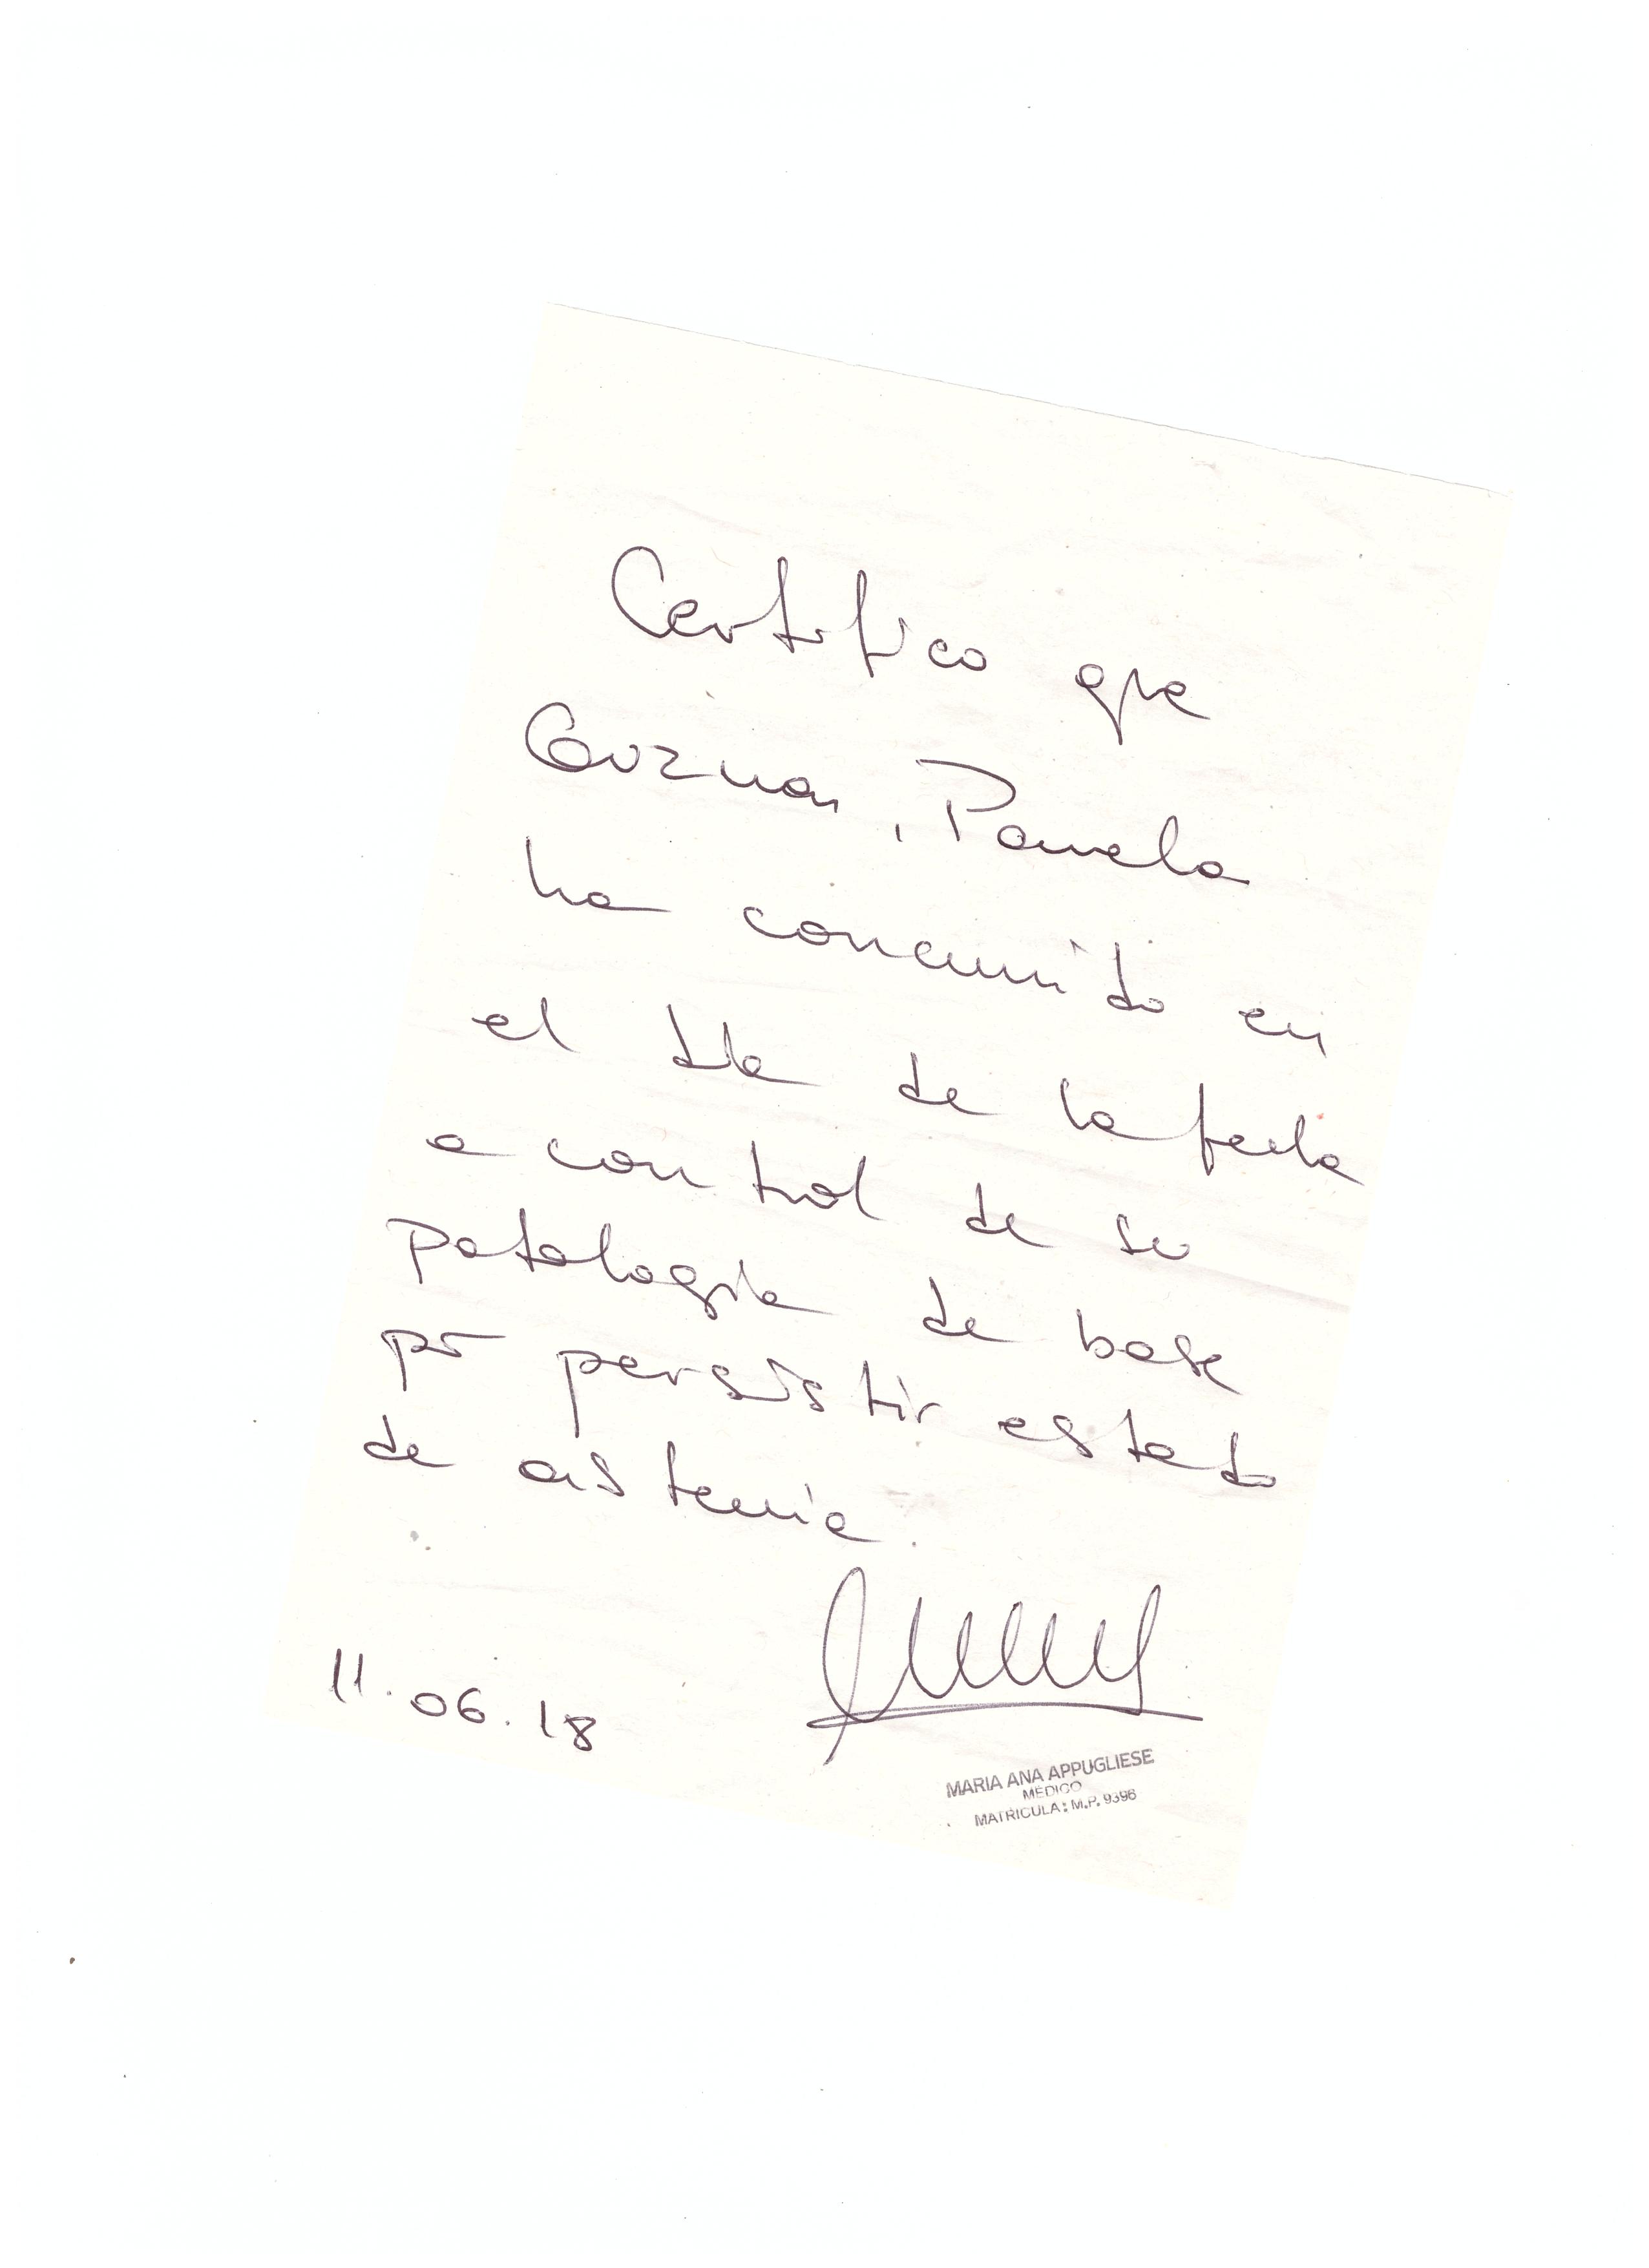 Certifico que
Guzman, Pamela
ha concurrido en
el día de la fecha
a control de su
patología de base
por persistir estado
de astenia.
11.06.18
MARIA ANA APPUGLIESE
MÉDICO
MATRICULA: M.P. 9396